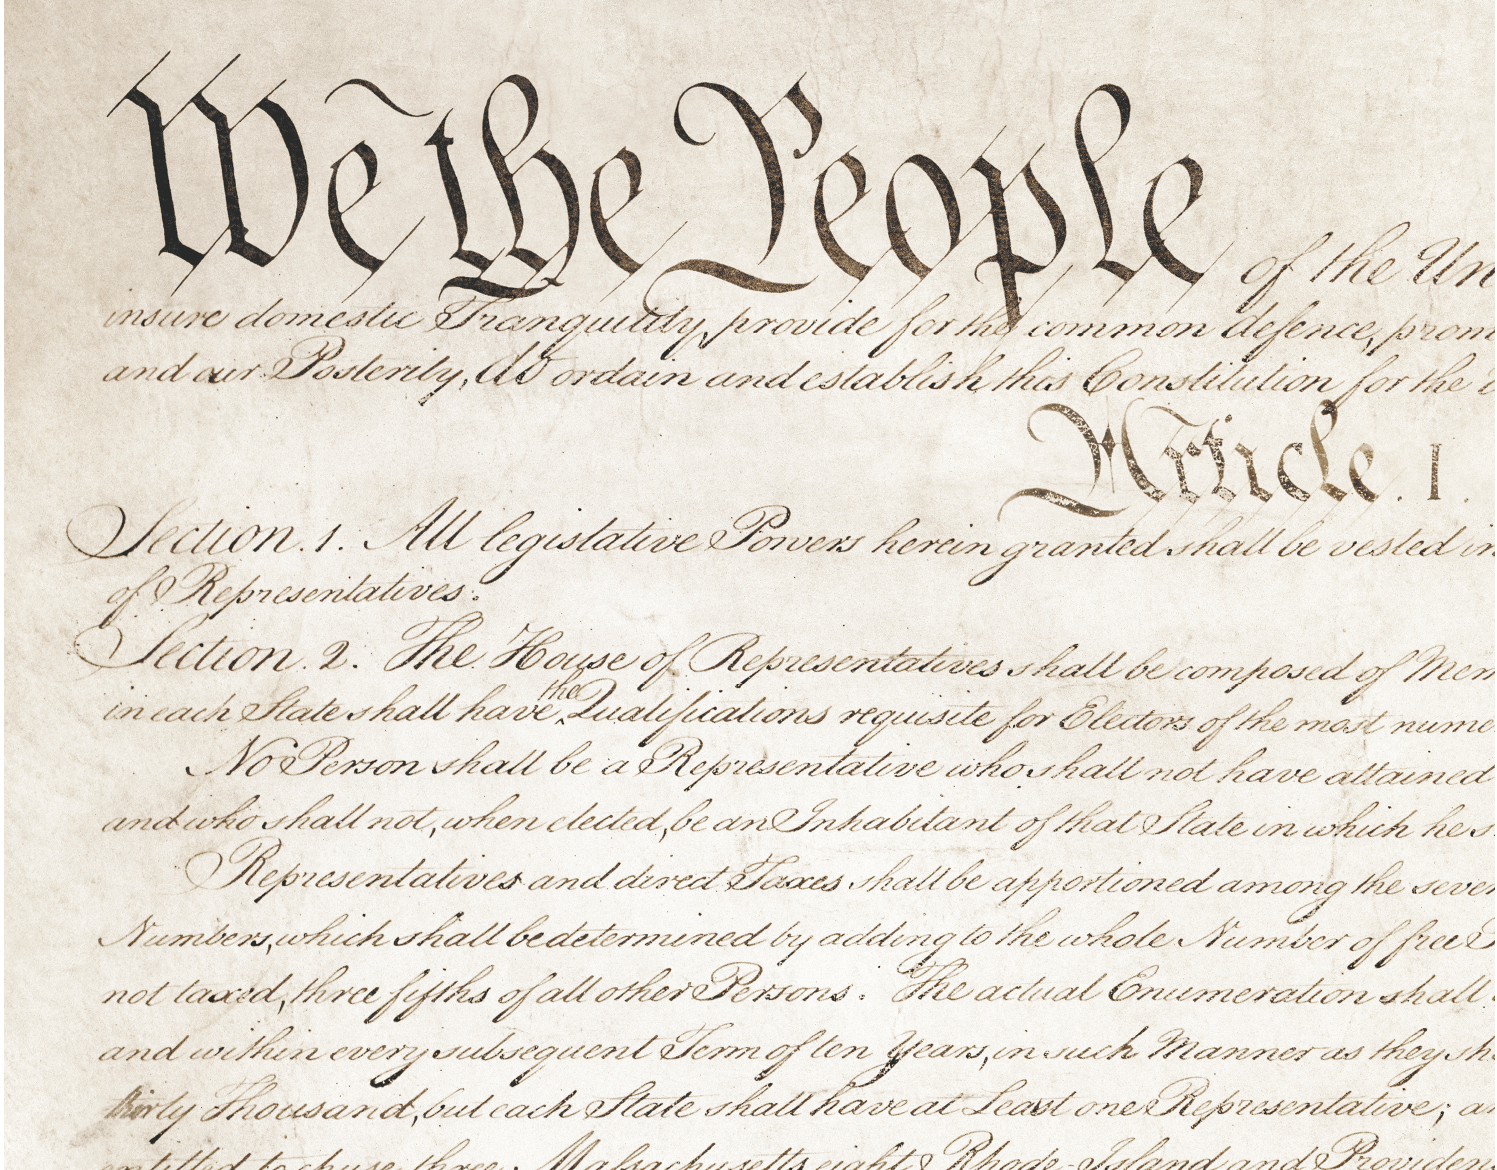 We the People of the Un
insure domestic Tranquility, provide for the common defence, prom
and our Posterity, do ordain and establish this Constitution for the
Article. I.
Section. 1. All legislative Powers herein granted shall be vested in
of Representatives.
Section. 2. The House of Representatives shall be composed of Mem
in each State shall have the Qualifications requisite for Electors of the most nume
No Person shall be a Representative who shall not have attained
and who shall not, when elected, be an Inhabitant of that State in which he s
Representatives and direct Taxes shall be apportioned among the sever
Numbers, which shall be determined by adding to the whole Number of free
not taxed, three fifths of all other Persons. The actual Enumeration shall
and within every subsequent Term of ten Years, in such Manner as they sh
thirty Thousand, but each State shall have at Least one Representative; a
entitled to chuse three, Massachusetts eight, Rhode-Island and Providen